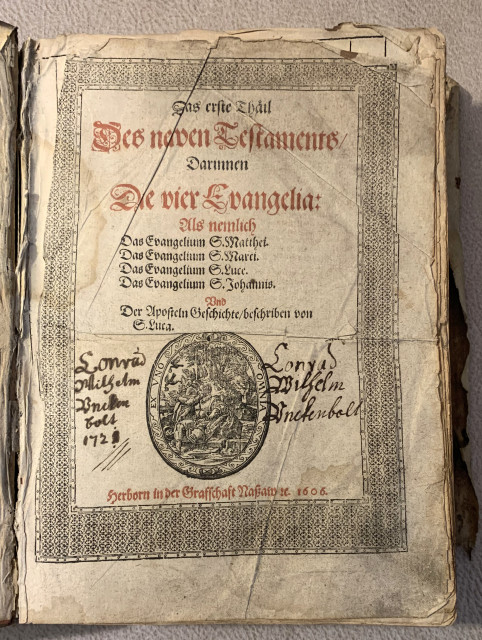 Das erste Theil
Des neven Testaments/
Darinnen
Die vier Evangelia:
Als nemlich
Das Evangelium S. Matthei.
Das Evangelium S. Marci.
Das Evangelium S. Luce.
Das Evangelium S. Johannis.
Vnd
Der Aposteln Geschichte/beschriben von
S. Luca.
EX UNO OMNIA
Conrad
Wilhelm
Vncken
bolt
1721
Conrad
Wilhelm
Vnckenbolt
Herborn in der Graffschaft Naßaw ꝛc. 1606.